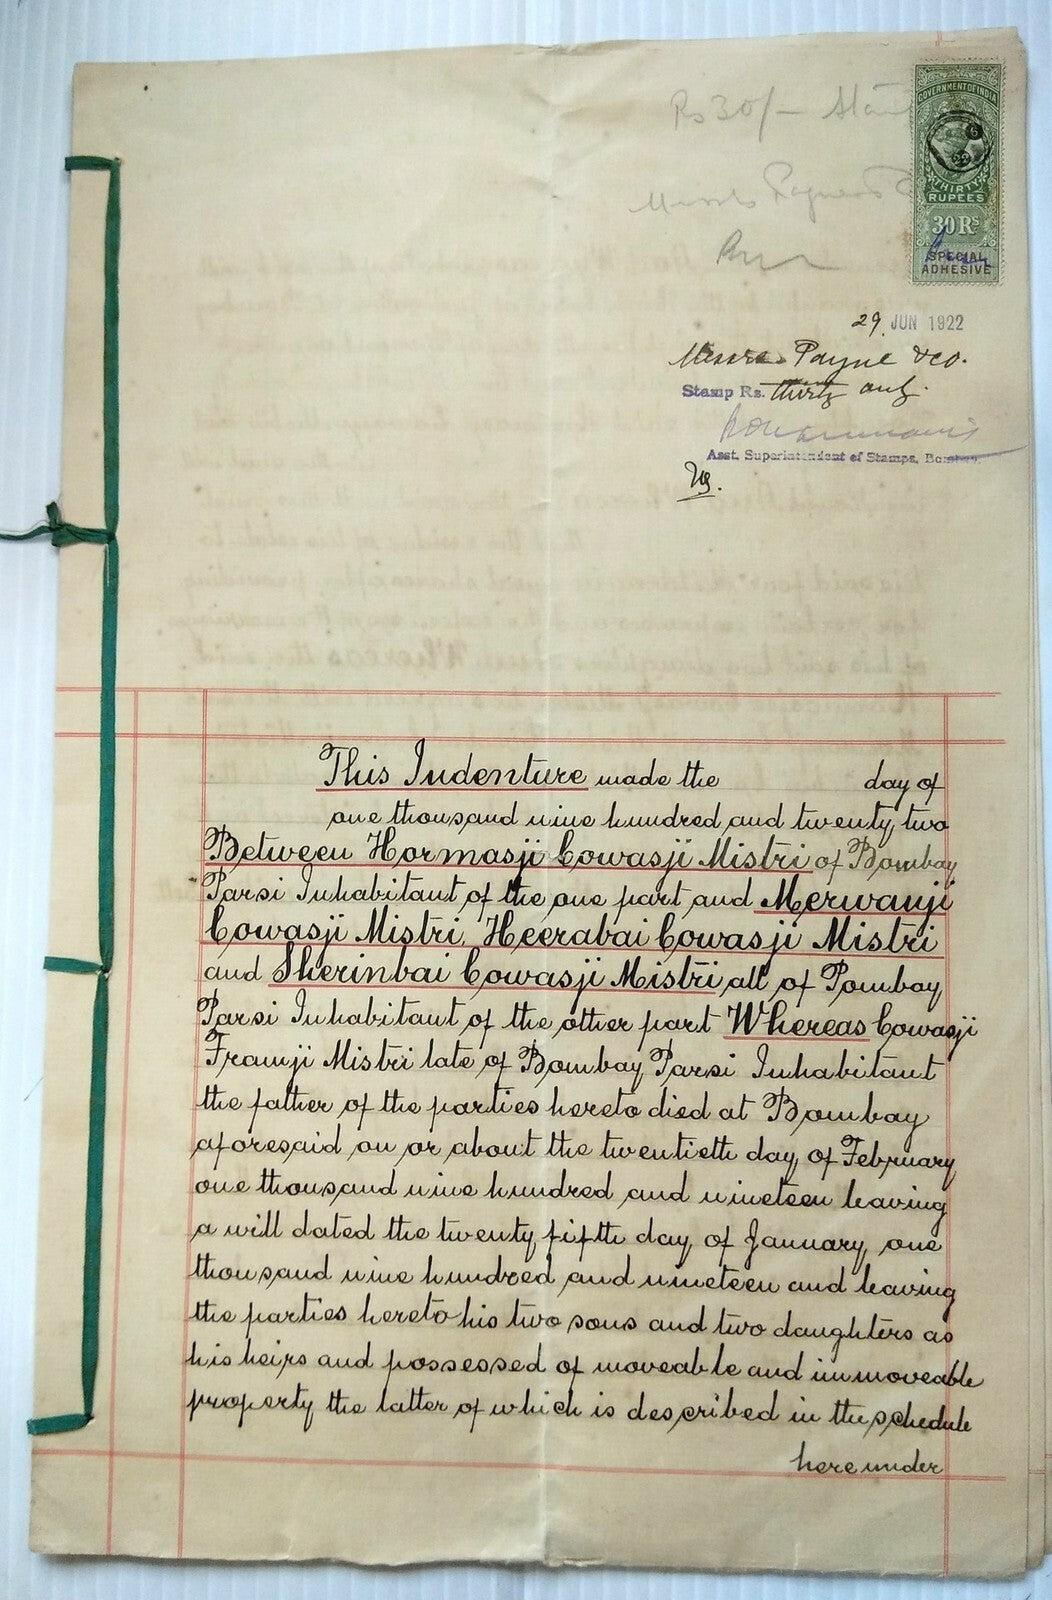 Rs 30/-
GOVERNMENT OF INDIA
THIRTY
RUPEES
30 Rs
SPECIAL
ADHESIVE
29 JUN 1922
Messrs. Payne & Co.
Stamp Rs. thirty only.
Asst. Superintendent of Stamps, Bombay
This Indenture made the day of
one thousand nine hundred and twenty two
Between Hormasji Cowasji Mistri of Bombay
Parsi Inhabitant of the one part and Merwanji
Cowasji Mistri, Heerabai Cowasji Mistri
and Sherinbai Cowasji Mistri all of Bombay
Parsi Inhabitant of the other part Whereas Cowasji
Framji Mistri late of Bombay Parsi Inhabitant
the father of the parties hereto died at Bombay
aforesaid on or about the twentieth day of February
one thousand nine hundred and nineteen leaving
a will dated the twenty fifth day of January one
thousand nine hundred and nineteen and leaving
the parties hereto his two sons and two daughters as
his heirs and possessed of moveable and immoveable
property the latter of which is described in the schedule
hereunder